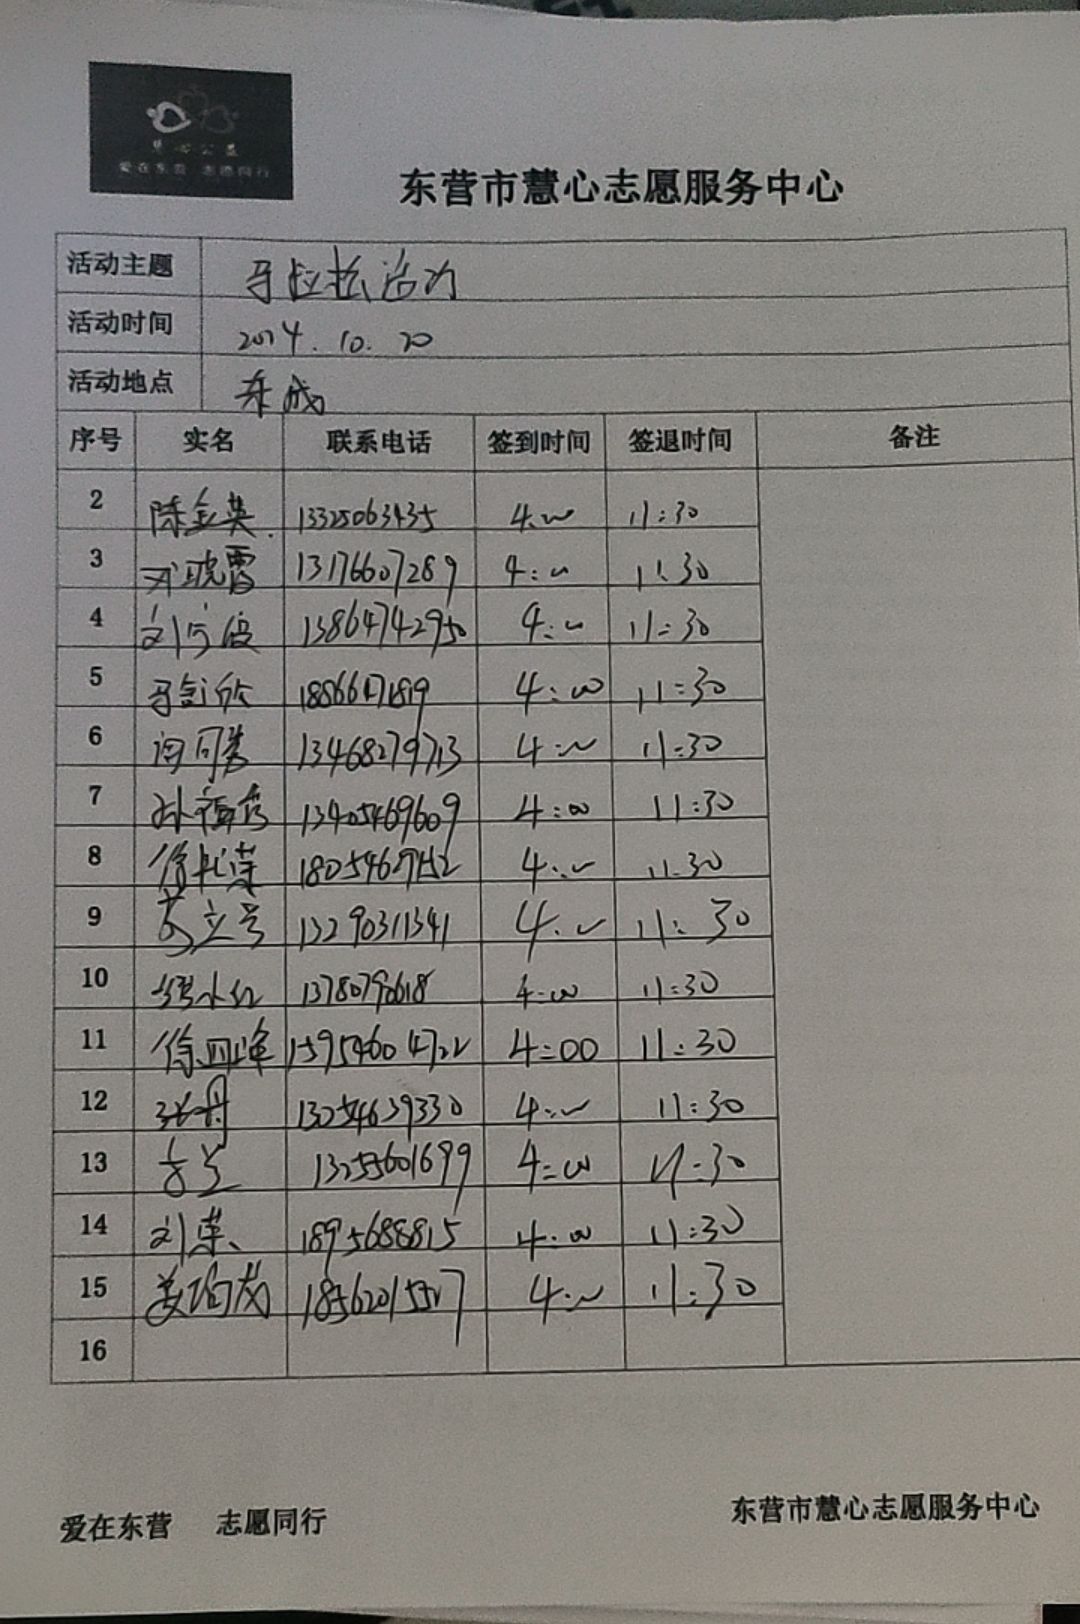 慧心公益
爱在东营 志愿同行
东营市慧心志愿服务中心
活动主题 马拉松活动
活动时间 2024.10.20
活动地点 东城
序号 实名 联系电话 签到时间 签退时间 备注
2 陈金英 13325063435 4:00 11:30
3 晓霞 13176607289 4:00 11:30
4 刘 13864742950 4:00 11:30
5 马 4:00 11:30
6 13468279713 4:00 11:30
7 孙福秀 13405469609 4:00 11:30
8 徐 18054627152 4:00 11:30
9 立 13290311341 4:00 11:30
10 13780790618 4:00 11:30
11 徐 15954604722 4:00 11:30
12 张丹 13254639330 4:00 11:30
13 13255601699 4:00 11:30
14 刘荣 4:00 11:30
15 姜 18562015527 4:00 11:30
16
爱在东营 志愿同行
东营市慧心志愿服务中心